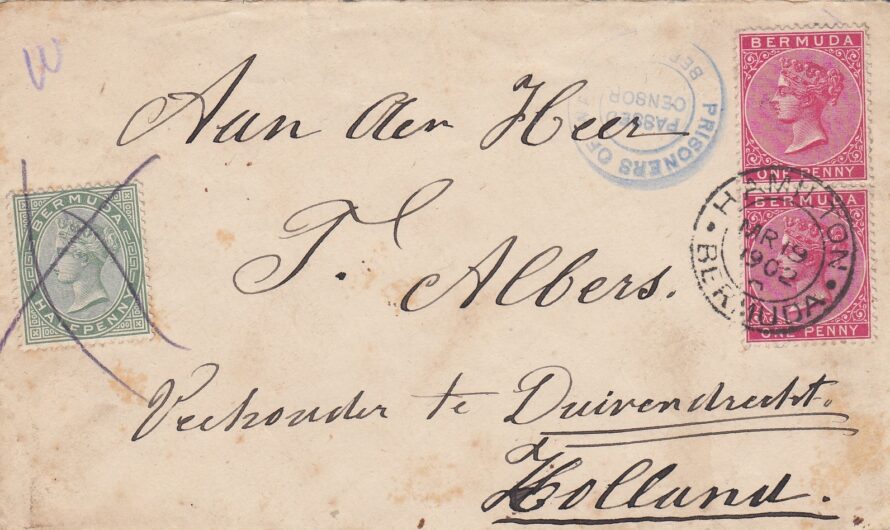 W
Aan den Heer
T. Albers.
Veehouder te Duivendrecht.
Holland.
BERMUDA
HALFPENNY
PRISONERS OF
BER
PASSED
CENSOR
BERMUDA
ONE PENNY
HAMILTON
MR 19
1902
BERMUDA
ONE PENNY